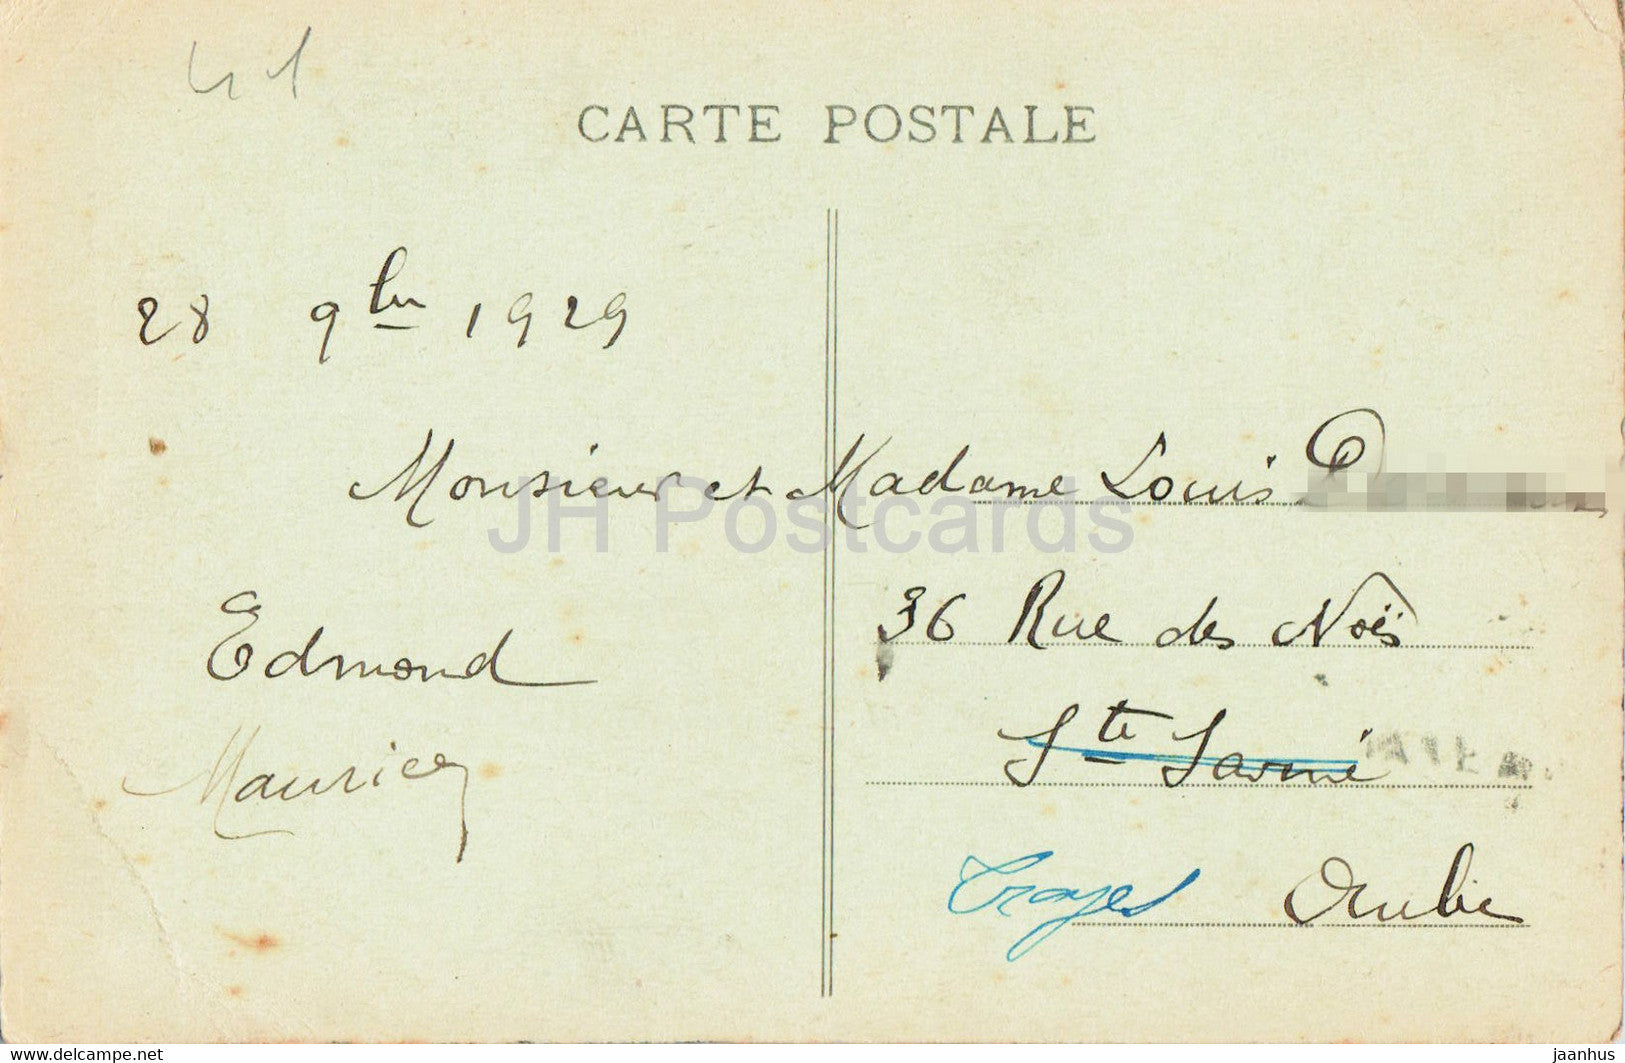 41
CARTE POSTALE
28 9bre 1929
Monsieur et Madame Louis
JH Postcards
36 Rue des Noës
Edmond
Ste Savine
Maurice
Troyes Aube
www.delcampe.net
jaanhus